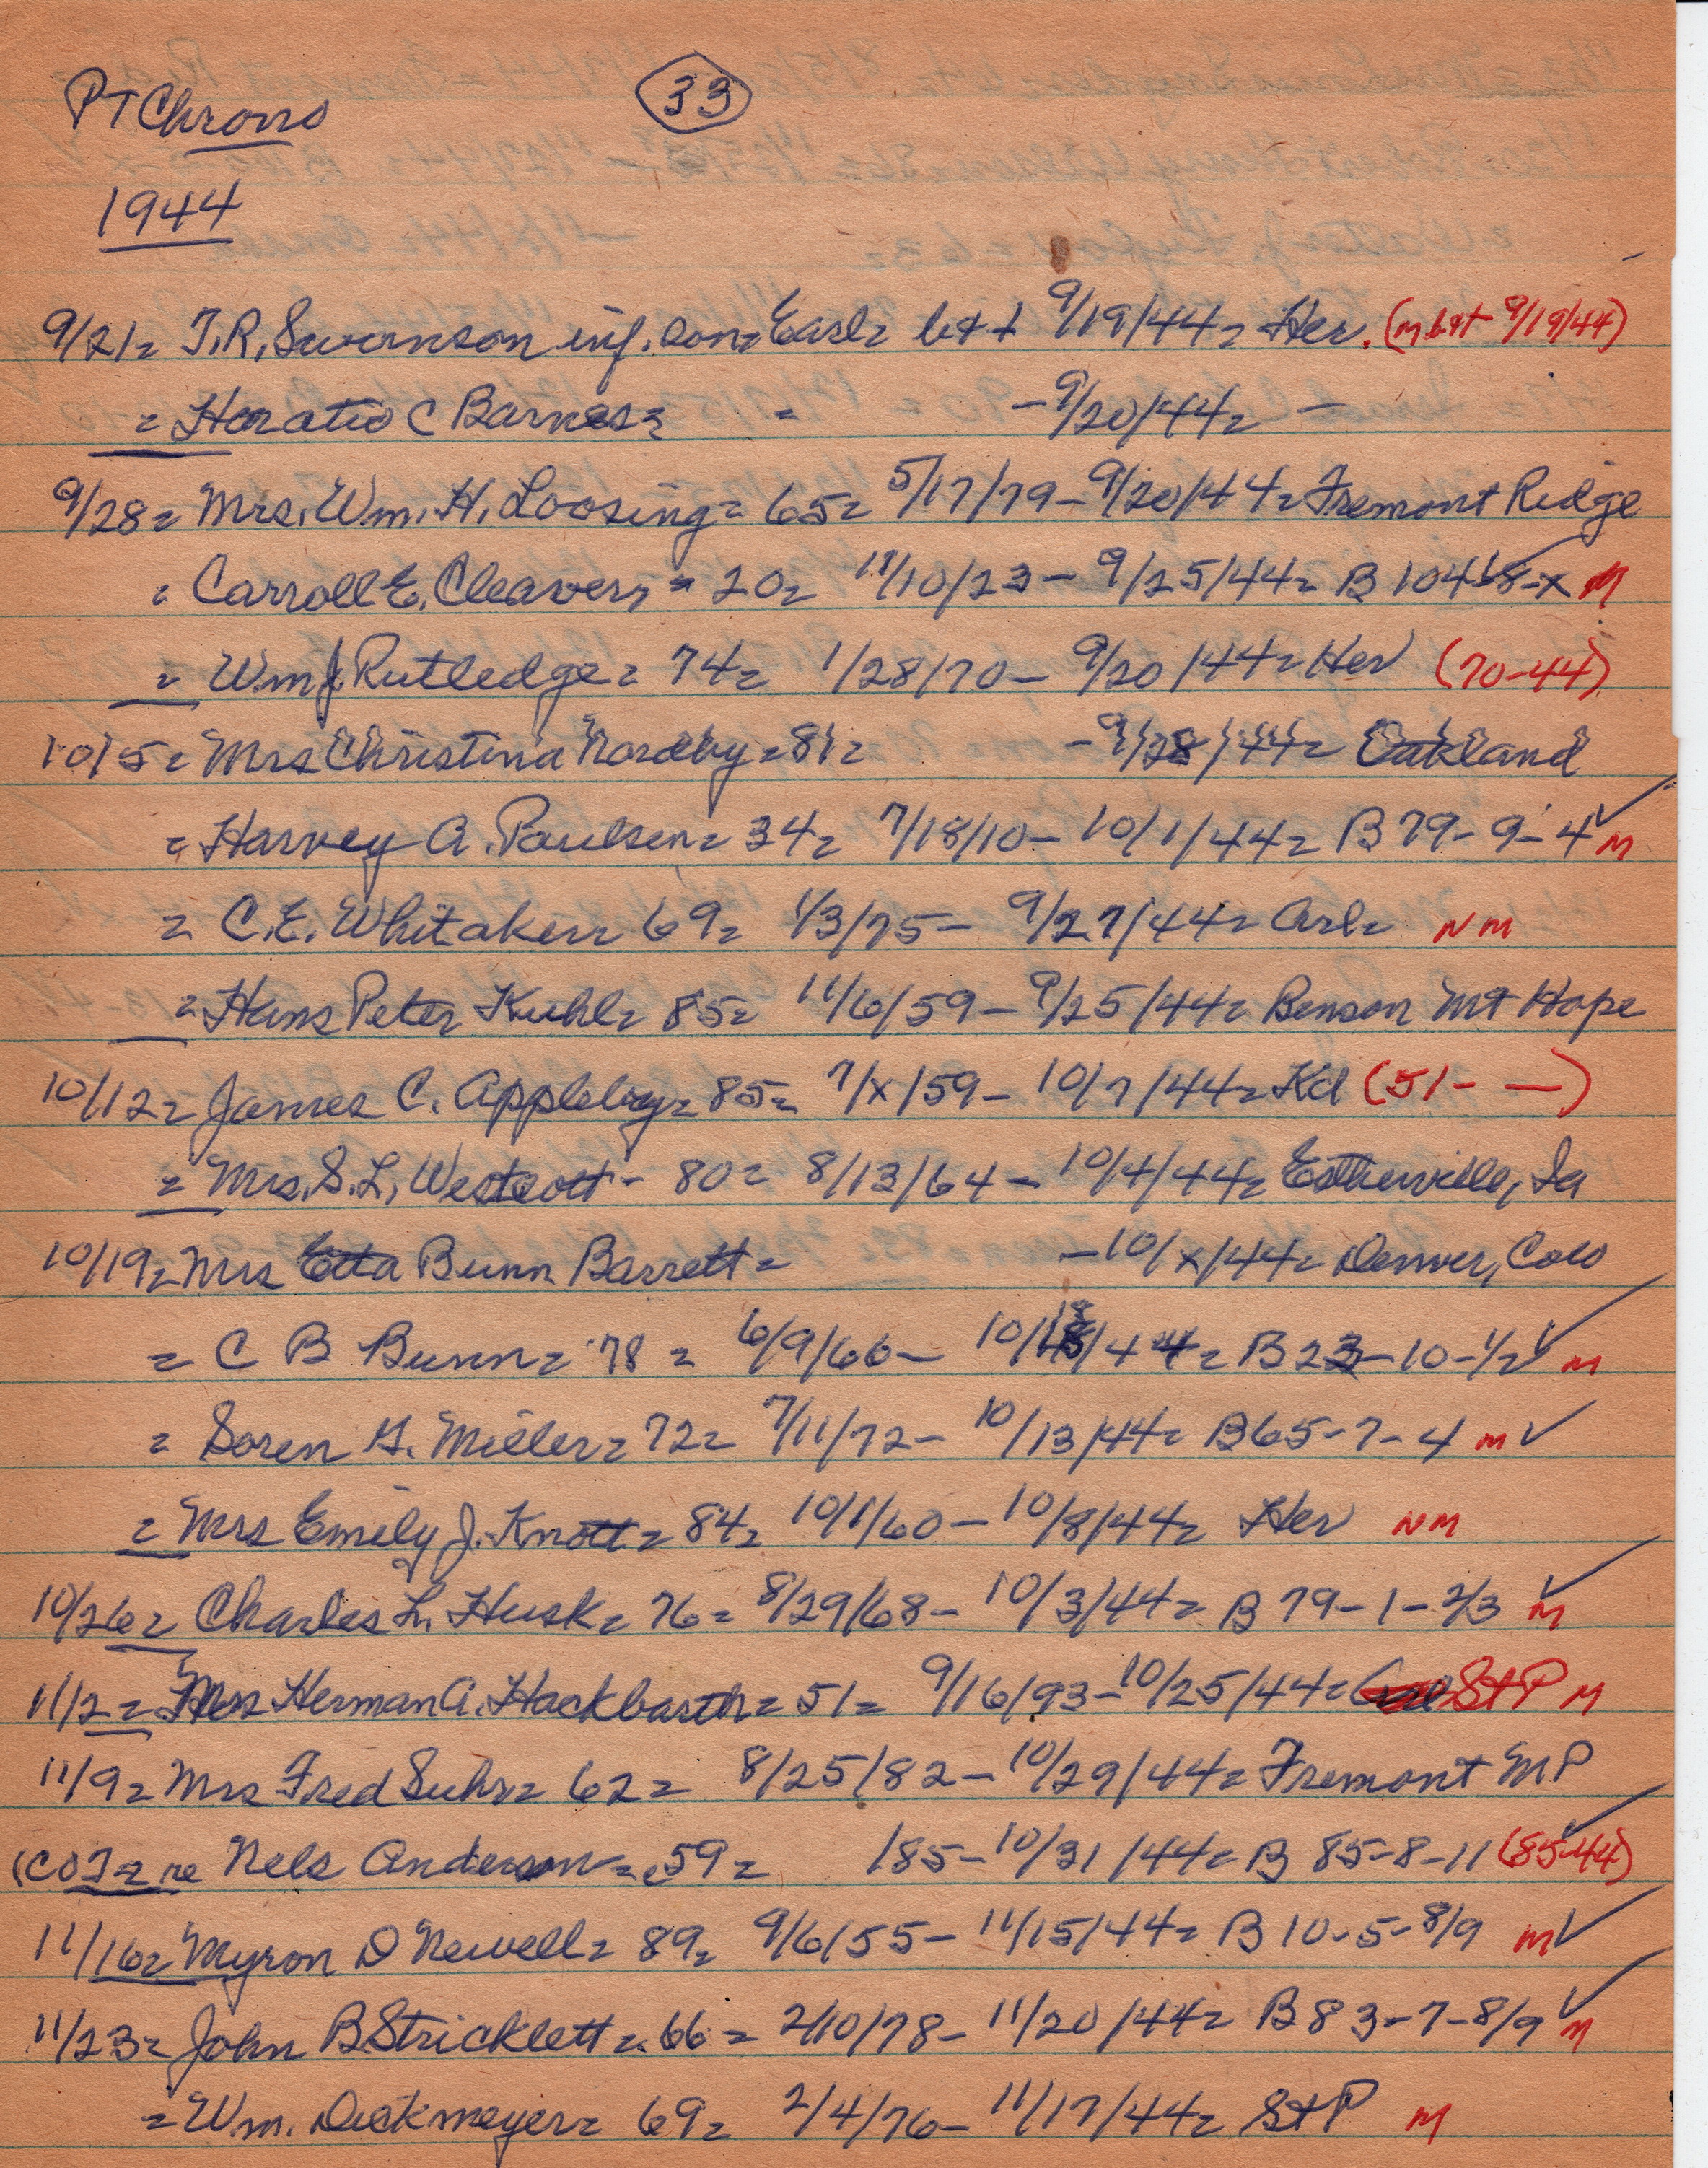 PT Chrono
33
1944
9/21= T.R. Swanson inf. son= Earl= b+t 9/19/44= Her. (m b+t 9/19/44)
= Horatio C Barnes= = - 9/20/44= -
9/28= Mrs. Wm. H. Loosing= 65= 5/17/79 - 9/20/44= Fremont Ridge
= Carroll E. Cleaver= = 20= 11/10/23 - 9/25/44= B 104 -8-x M
= Wm J. Rutledge= 74= 1/28/70 - 9/20/44= Her (70-44)
10/5= Mrs Christina Nordby= 81= - 9/28/44= Oakland
= Harvey A. Paulsen= 34= 7/18/10 - 10/1/44= B 79-9-4 ✓ M
= C.E. Whitaker= 69= 1/3/75 - 9/27/44= Arl= NM
= Hans Peter Kuhl= 85= 11/6/59 - 9/25/44= Benson Mt Hope
10/12= James C. Appleby= 85= 7/x/59 - 10/7/44= Kd (51- —)
= Mrs. S.L. Westcott - 80= 8/13/64 - 10/4/44= Estherville, Ia
10/19= Mrs Etta Bunn Barrett= - 10/x/44= Denver, Colo
= C B Bunn= 78= 6/9/66 - 10/18/44= B 23-10-1/2 ✓ M
= Soren G. Miller= 72= 7/11/72 - 10/13/44= B 65-7-4 M ✓
= Mrs Emily J. Knott= 84= 10/1/60 - 10/8/44= Her NM
10/26= Charles L. Husk= 76= 8/29/68 - 10/3/44= B 79-1-2/3 ✓ M
11/2= Mrs Herman A. Hackbarth= 51= 9/16/93 - 10/25/44= St P M
11/9= Mrs Fred Suhr= 62= 8/25/82 - 10/29/44= Fremont MP
(COT= re Nels Anderson= 59= /85 - 10/31/44= B 85-8-11 ✓ (85-44)
11/16= Myron D Newell= 89= 9/6/55 - 11/15/44= B 10-5-8/9 M ✓
11/23= John B Stricklett= 66= 2/10/78 - 11/20/44= B 83-7-8/9 ✓ M
= Wm. Dickmeyer= 69= 2/4/76 - 11/17/44= St P M